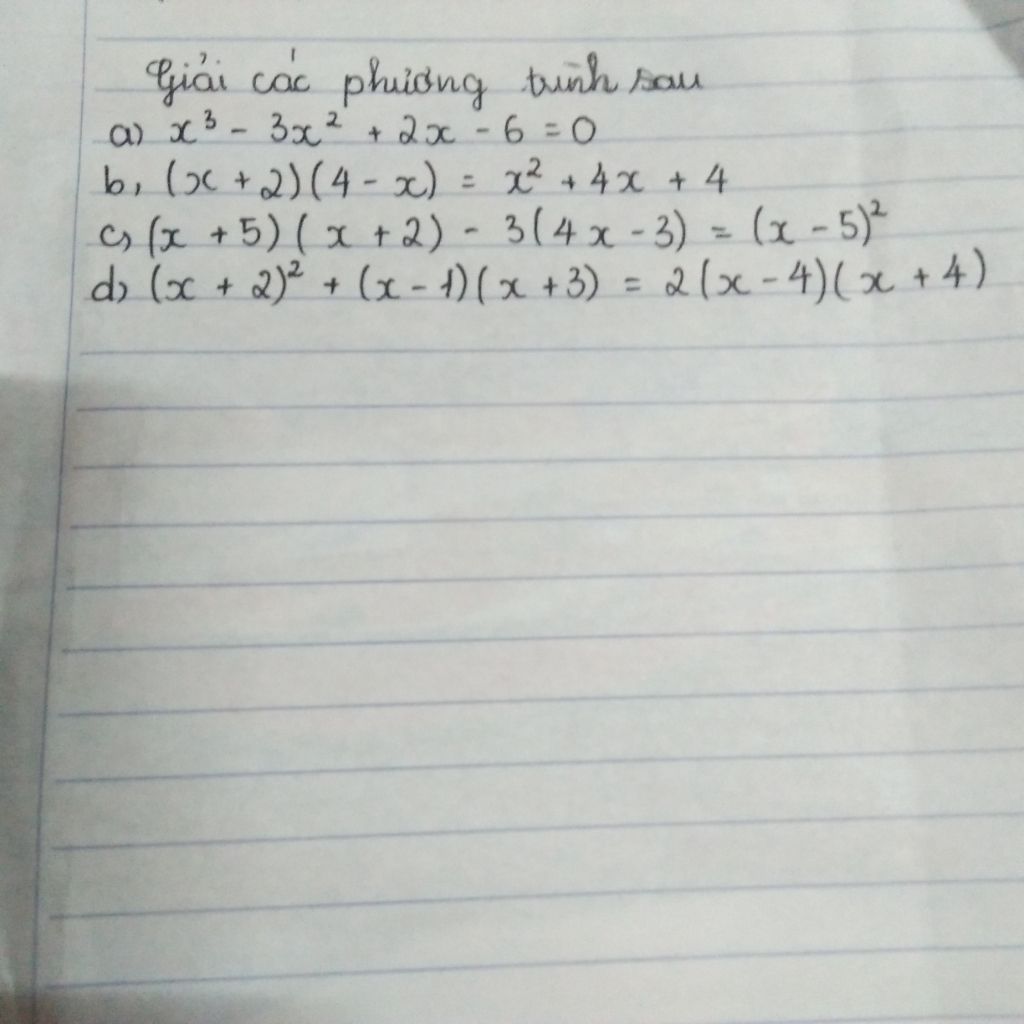 Giải các phương trình sau
a) x³ - 3x² + 2x - 6 = 0
b, (x + 2)(4 - x) = x² + 4x + 4
c, (x + 5)(x + 2) - 3(4x - 3) = (x - 5)²
d, (x + 2)² + (x - 1)(x + 3) = 2(x - 4)(x + 4)